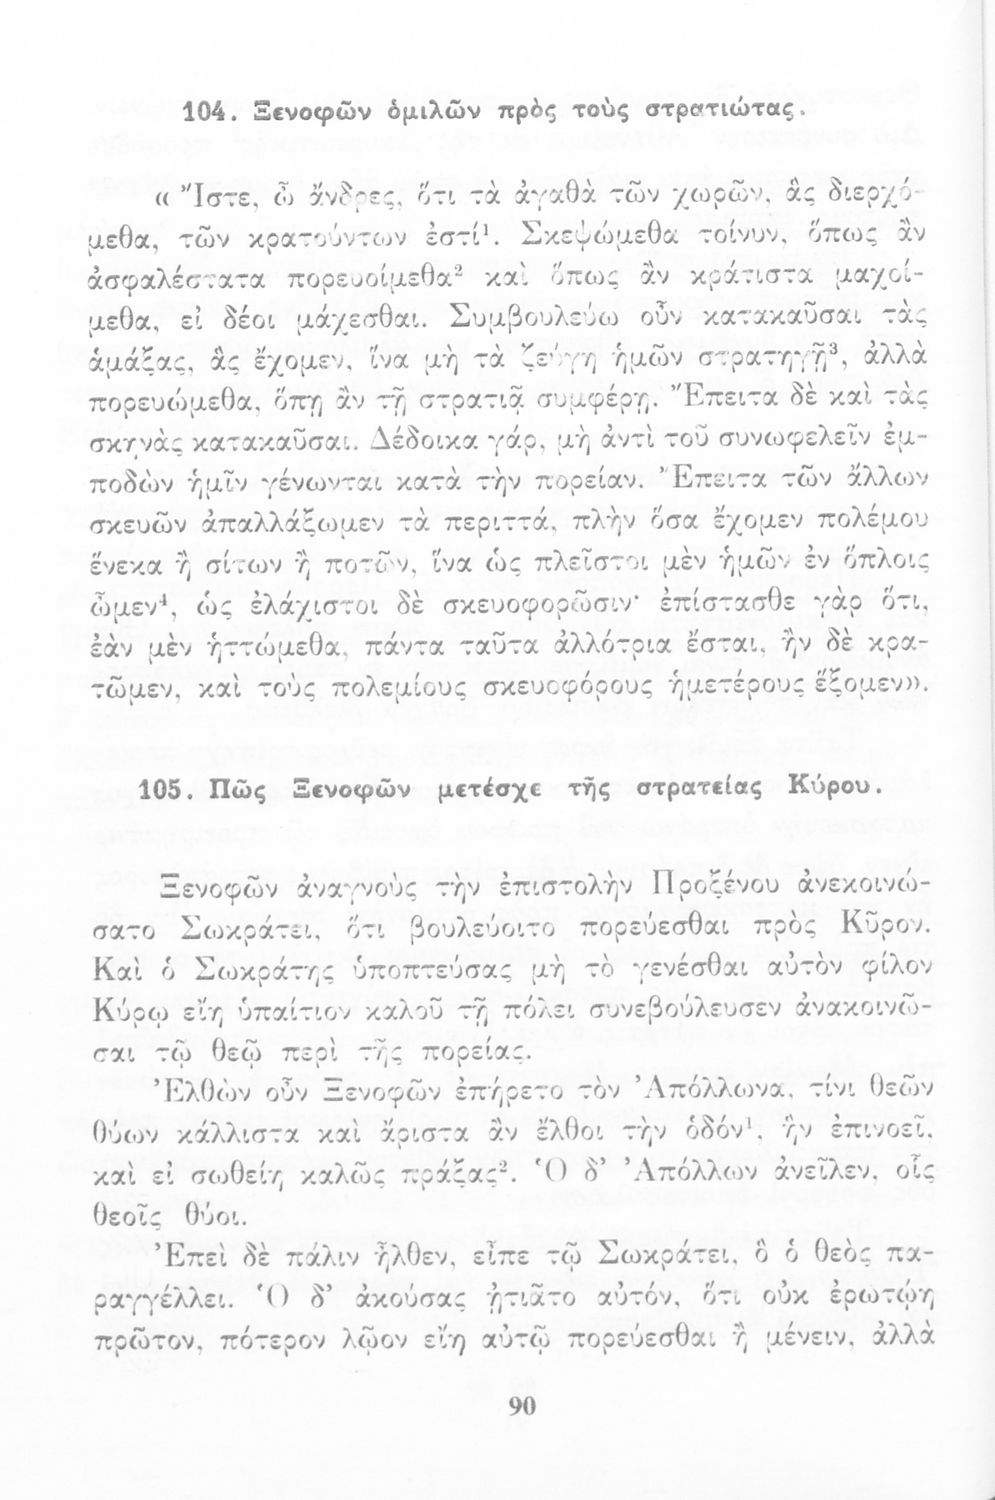 104. Ξενοφῶν ὁμιλῶν πρὸς τοὺς στρατιώτας.
« Ἴστε, ὦ ἄνδρες, ὅτι τὰ ἀγαθὰ τῶν χωρῶν, ἃς διερχό-
μεθα, τῶν κρατούντων ἐστί¹. Σκεψώμεθα τοίνυν, ὅπως ἂν
ἀσφαλέστατα πορευοίμεθα² καὶ ὅπως ἂν κράτιστα μαχοί-
μεθα, εἰ δέοι μάχεσθαι. Συμβουλεύω οὖν κατακαῦσαι τὰς
ἁμάξας, ἃς ἔχομεν, ἵνα μὴ τὰ ζεύγη ἡμῶν στρατηγῇ³, ἀλλὰ
πορευώμεθα, ὅπῃ ἂν τῇ στρατιᾷ συμφέρῃ. Ἔπειτα δὲ καὶ τὰς
σκηνὰς κατακαῦσαι. Δέδοικα γάρ, μὴ ἀντὶ τοῦ συνωφελεῖν ἐμ-
ποδὼν ἡμῖν γένωνται κατὰ τὴν πορείαν. Ἔπειτα τῶν ἄλλων
σκευῶν ἀπαλλάξωμεν τὰ περιττά, πλὴν ὅσα ἔχομεν πολέμου
ἕνεκα ἢ σίτων ἢ ποτῶν, ἵνα ὡς πλεῖστοι μὲν ἡμῶν ἐν ὅπλοις
ὦμεν⁴, ὡς ἐλάχιστοι δὲ σκευοφορῶσιν· ἐπίστασθε γὰρ ὅτι,
ἐὰν μὲν ἡττώμεθα, πάντα ταῦτα ἀλλότρια ἔσται, ἢν δὲ κρα-
τῶμεν, καὶ τοὺς πολεμίους σκευοφόρους ἡμετέρους ἕξομεν».
105. Πῶς Ξενοφῶν μετέσχε τῆς στρατείας Κύρου.
Ξενοφῶν ἀναγνοὺς τὴν ἐπιστολὴν Προξένου ἀνεκοινώ-
σατο Σωκράτει, ὅτι βουλεύοιτο πορεύεσθαι πρὸς Κῦρον.
Καὶ ὁ Σωκράτης ὑποπτεύσας μὴ τὸ γενέσθαι αὐτὸν φίλον
Κύρῳ εἴη ὑπαίτιον καλοῦ τῇ πόλει συνεβούλευσεν ἀνακοινῶ-
σαι τῷ θεῷ περὶ τῆς πορείας.
Ἐλθὼν οὖν Ξενοφῶν ἐπήρετο τὸν Ἀπόλλωνα, τίνι θεῶν
θύων κάλλιστα καὶ ἄριστα ἂν ἔλθοι τὴν ὁδόν¹, ἣν ἐπινοεῖ,
καὶ εἰ σωθείη καλῶς πράξας². Ὁ δ' Ἀπόλλων ἀνεῖλεν, οἷς
θεοῖς θύοι.
Ἐπεὶ δὲ πάλιν ἦλθεν, εἶπε τῷ Σωκράτει, ὃ ὁ θεὸς πα-
ραγγέλλει. Ὁ δ' ἀκούσας ᾐτιᾶτο αὐτόν, ὅτι οὐκ ἐρωτῴη
πρῶτον, πότερον λῷον εἴη αὐτῷ πορεύεσθαι ἢ μένειν, ἀλλὰ
90